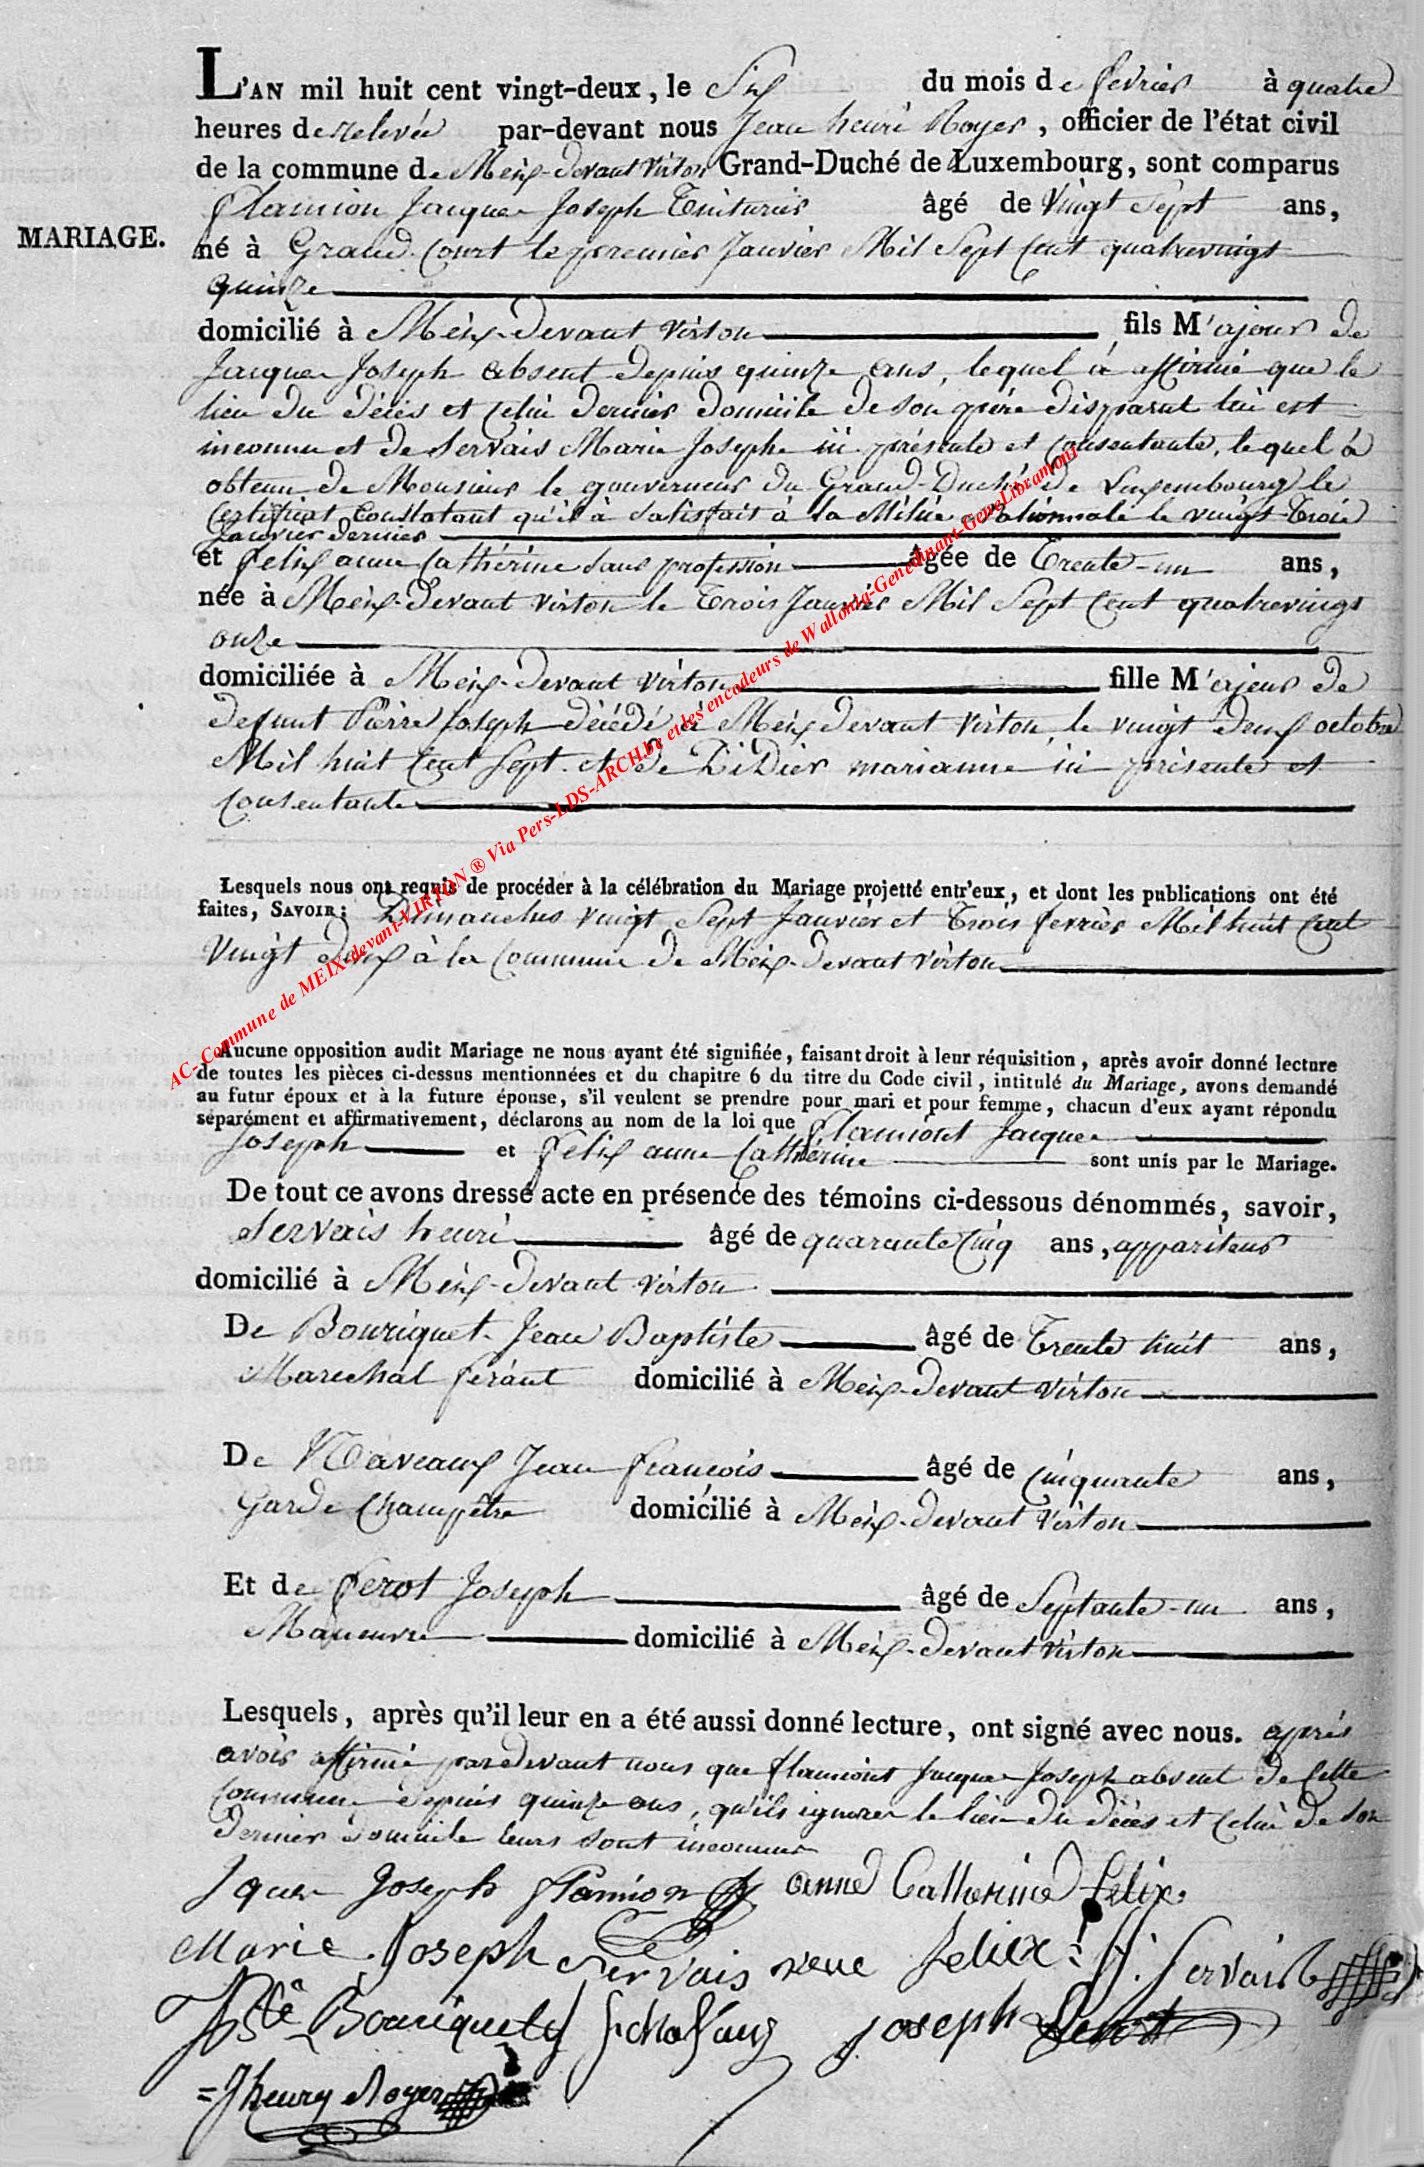 L'AN mil huit cent vingt-deux, le Six du mois de fevrier à quatre
heures de relevée par-devant nous Jean henri Royer, officier de l'état civil
de la commune de Meix-devant virton Grand-Duché de Luxembourg, sont comparus
flamion Jacques Joseph Teinturier âgé de Vingt Sept ans,
MARIAGE.
né à Grand Court le premier Janvier Mil Sept Cent quatrevingt
quinze
domicilié à Meix-devant virton fils M'ajeur de
Jacques Joseph absent depuis quinze ans, lequel à affirmé que le
lieu du décès et celui dernier domicile de son père disparut lui est
inconnu et de Servais Marie Josephe ici présente et Consentante, lequel à
obtenu de Monsieur le gouverneur du Grand-Duché de Luxembourg le
Certificat Constatant qu'il à satisfait à la Milice Nationnale le vingt-Trois
Janvier dernier
et felix anne Cathérine sans profession âgée de Trente-un ans,
née à Meix-devant virton le Trois Janvier Mil Sept Cent quatrevingt
onze
domiciliée à Meix-devant virton fille M'ajeur de
defunt Pierre Joseph décédé à Meix devant virton, le vingt deux octobre
Mil huit Cent Sept et de Didier marianne ici présente et
Consentante
Lesquels nous ont requis de procéder à la célébration du Mariage projetté entr'eux, et dont les publications ont été
faites, SAVOIR: Dimanches vingt Sept Janvier et Trois fevrier Mil huit Cent
Vingt deux à la Commune de Meix-devant virton
AC-Commune de MEIX-devant-VIRTON ® Via Pers-LDS-ARCH.be et les encodeurs de Wallonia-Genedinant-GeneLibramont
Aucune opposition audit Mariage ne nous ayant été signifiée, faisant droit à leur réquisition, après avoir donné lecture
de toutes les pièces ci-dessus mentionnées et du chapitre 6 du titre du Code civil, intitulé du Mariage, avons demandé
au futur époux et à la future épouse, s'il veulent se prendre pour mari et pour femme, chacun d'eux ayant répondu
séparément et affirmativement, déclarons au nom de la loi que flamiont Jacques
Joseph et felix anne Cathérine sont unis par le Mariage.
De tout ce avons dressé acte en présence des témoins ci-dessous dénommés, savoir,
Servais henri âgé de quarante Cinq ans, appariteur
domicilié à Meix-devant virton
De Bouriquet Jean Baptiste âgé de Trente huit ans,
Marechal ferant domicilié à Meix-devant virton
De Naveaux Jean françois âgé de Cinquante ans,
Garde Champêtre domicilié à Meix-devant virton
Et de Perot Joseph âgé de Septante-un ans,
Maneuvre domicilié à Meix-devant virton
Lesquels, après qu'il leur en a été aussi donné lecture, ont signé avec nous. après
avoir affirmé pardevant nous que flamiont Jacques Joseph absent de Cette
Commune depuis quinze ans, qu'ils ignorer le lieu du décès et Celui de son
dernier domicile leurs sont inconnus
Jquer Joseph flamion anne Catherine felix.
Marie Joseph Servais veue felix H. Servais
JBte Bouriquet Joseph Perot
J henry Royer